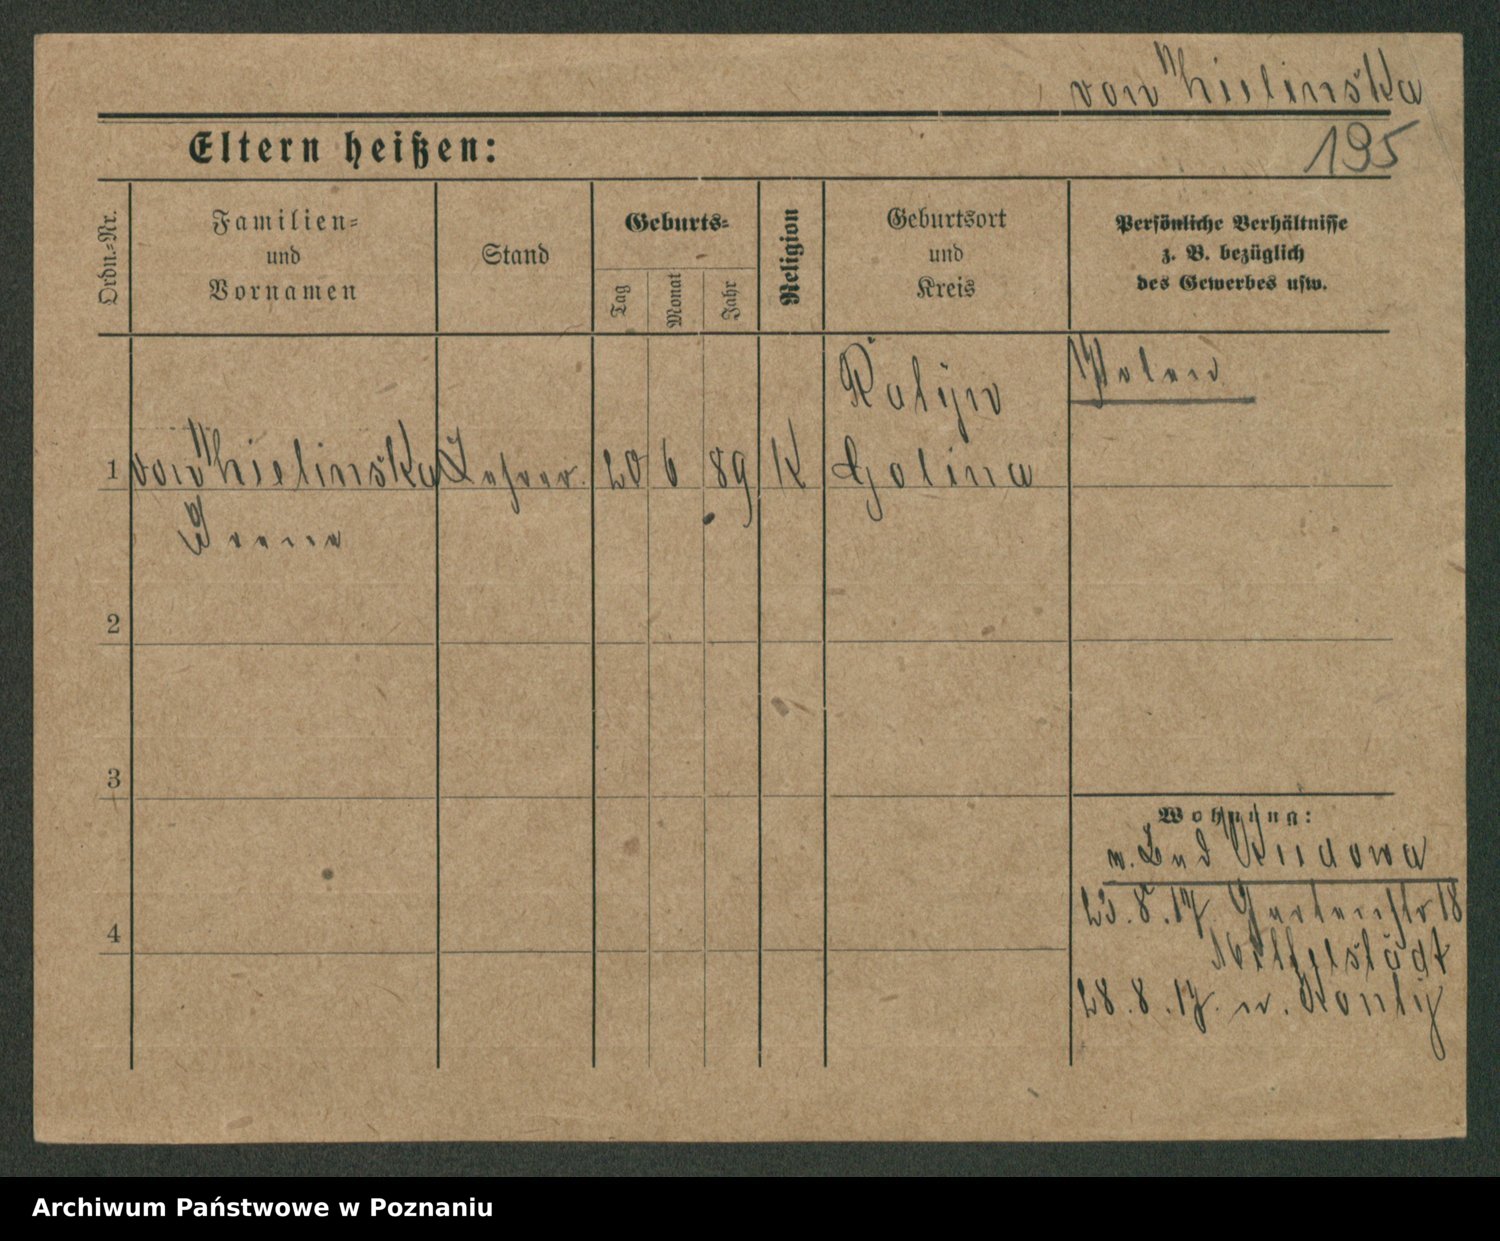 von Chielinska
195
Eltern heißen:
Ordn.-Nr.
Familien-
und
Vornamen
Stand
Geburts-
Tag
Monat
Jahr
Religion
Geburtsort
und
Kreis
Persönliche Verhältnisse
z. B. bezüglich
des Gewerbes usw.
Polen
1 von Chielinska Lehrer. 20 6 89 K Golina
Irena
2
3
Wohnung:
v. Bad Kudowa
23.8.17. Gartenstr 18
4
28.8.17. n.
Archiwum Państwowe w Poznaniu